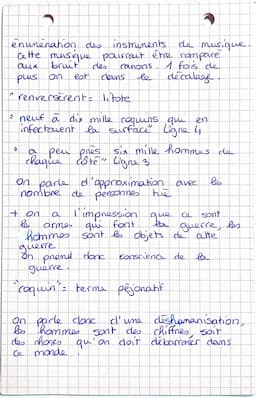 énumération des instruments de musique.
cette musique pourrait être comparé
aux bruit des canons. 1 fois de
plus on est dans le décalage.
"renversèrent = litote
"neuf à dix mille coquins qui en
infectaient la surface" ligne 4
"a peu près six mille hommes de
chaque côté" ligne 3
on parle d'approximation avec le
nombre de personnes tué
+ on a l'impression que ce sont
les armes qui font la guerre, les
hommes sont les objets de cette
guerre
on prend donc conscience de la
guerre.
"coquin" = terme péjoratif
on parle donc d'une déshumanisation,
les hommes sont des chiffres, soit
des choses qu'on doit débarrasser dans
ce monde.